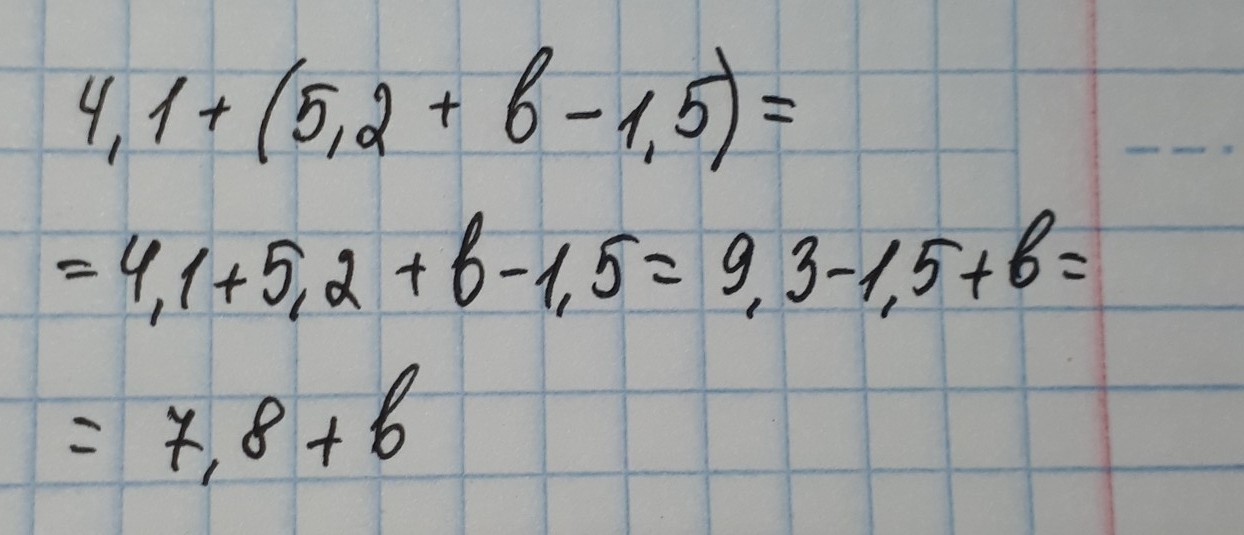 4,1 + (5,2 + b - 1,5) =
= 4,1 + 5,2 + b - 1,5 = 9,3 - 1,5 + b =
= 7,8 + b